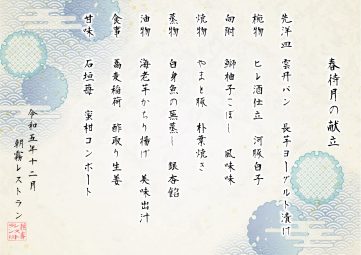 春待月の献立
先洋皿 雲丹パン 長芋ヨーグルト漬け
椀物 ヒレ酒仕立 河豚白子
向附 鰤柚子こぼし 風味味
焼物 やまと豚 朴葉焼き
蒸物 白身魚の蕪蒸し 銀杏餡
油物 海老芋かちり揚げ 美味出汁
食事 蕎麦稲荷 酢取り生姜
甘味 石垣苺 蜜柑コンポート
令和五年十二月
朝霧レストラン